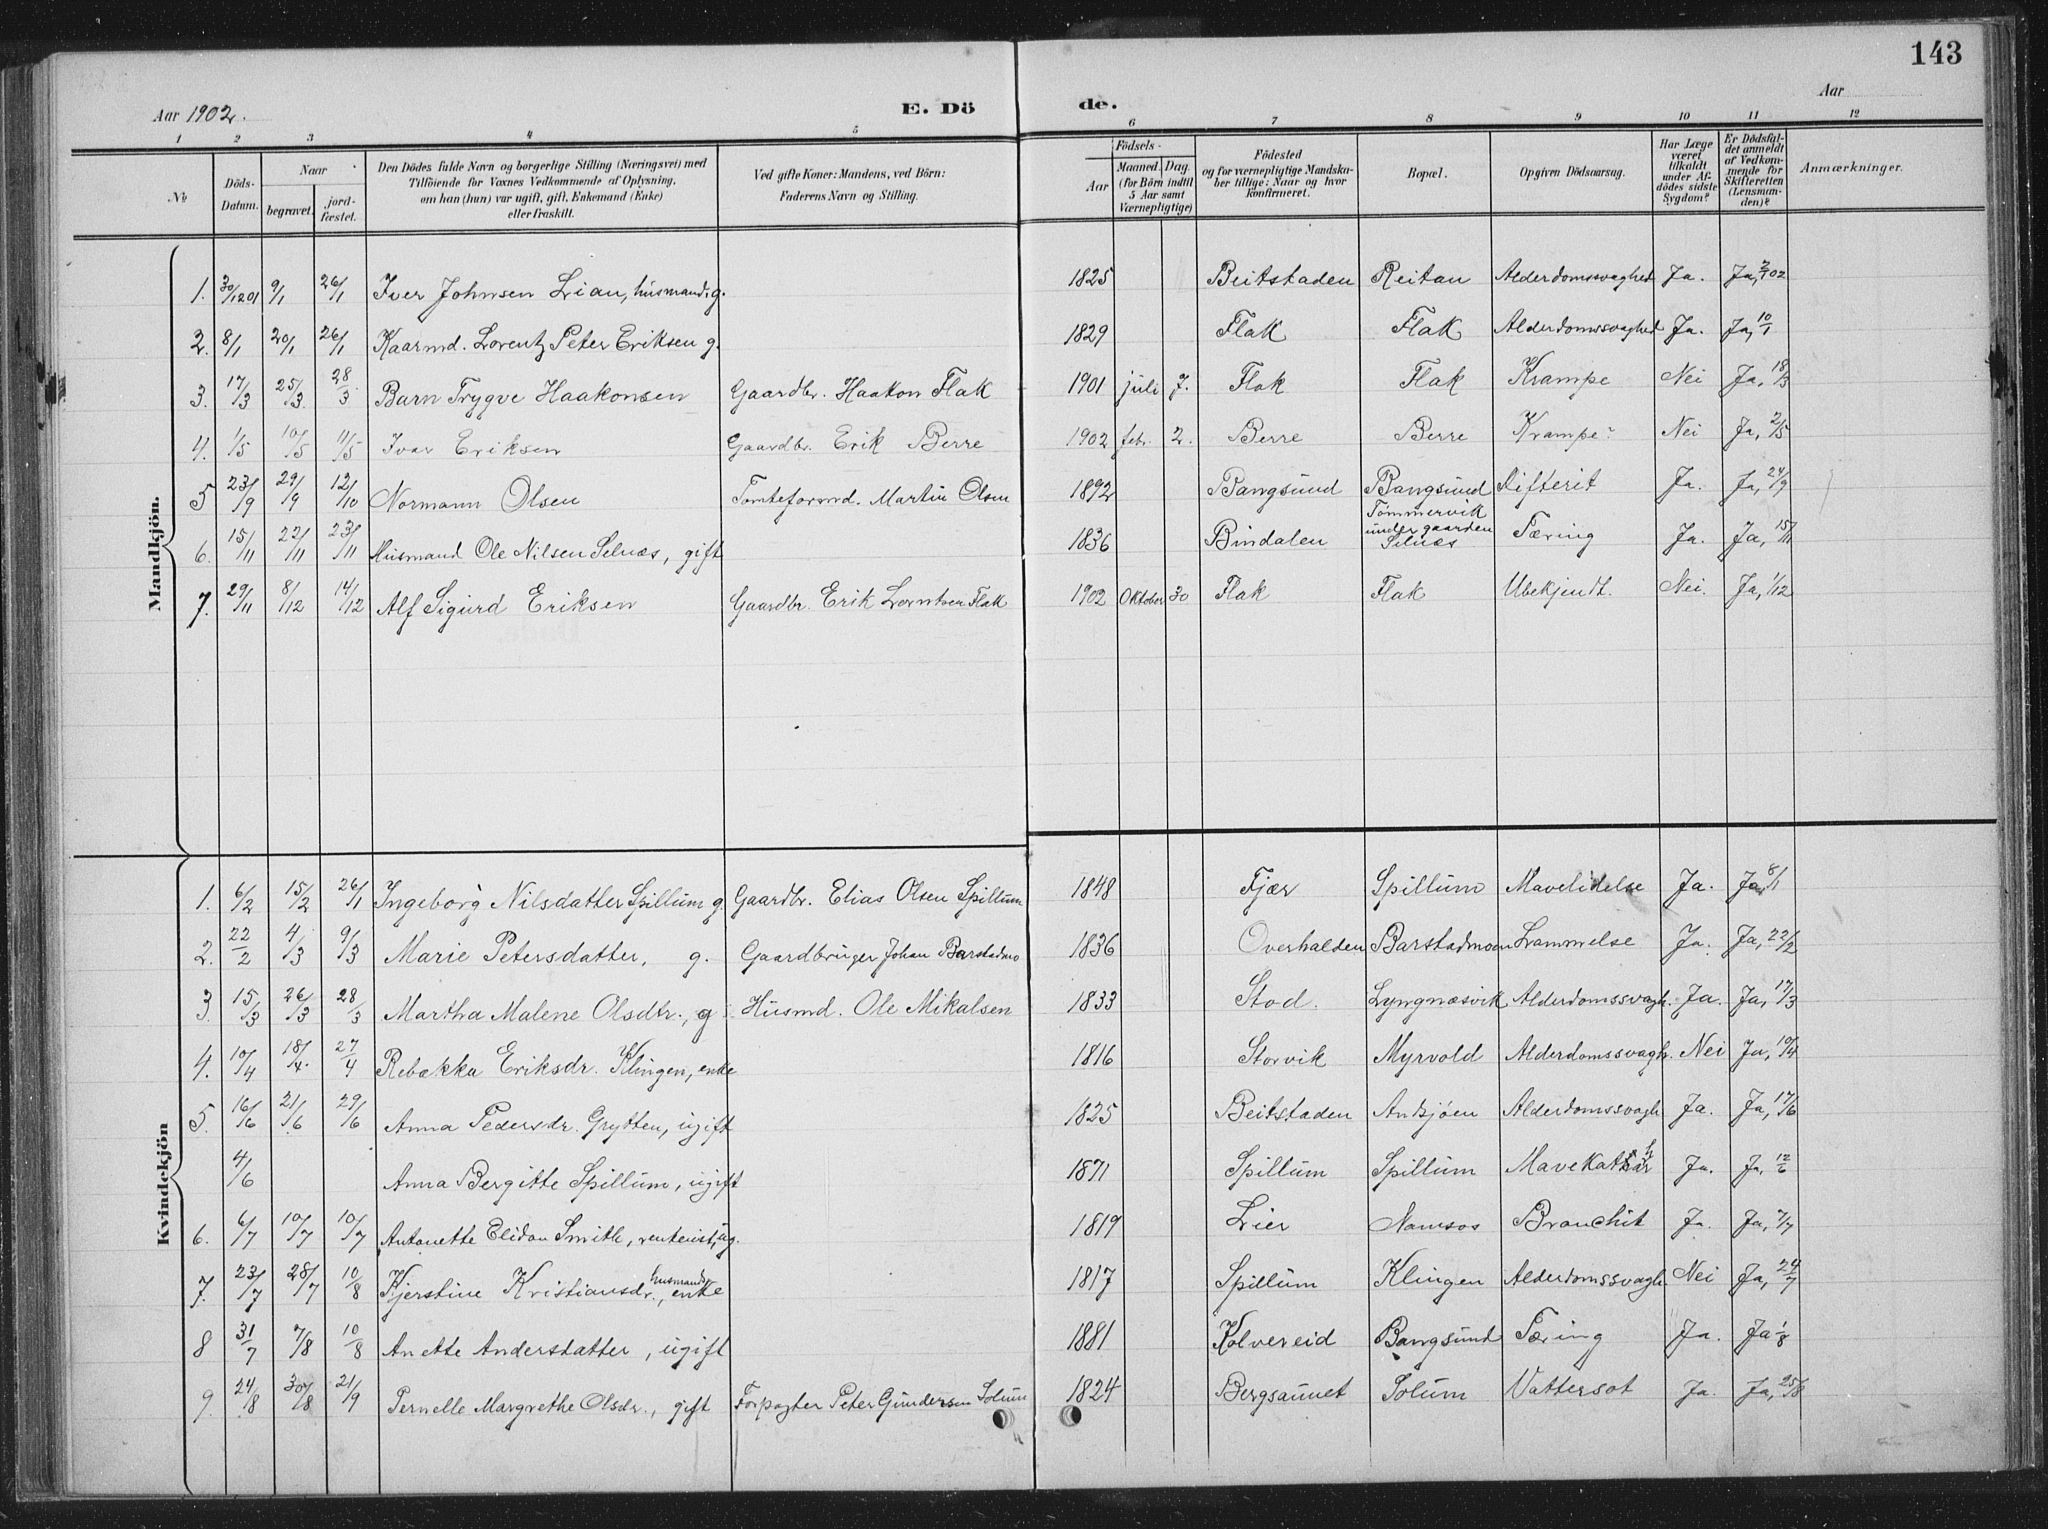 143
Aar 1902.
E. Dö
de.
Aar
1 2 3 4 5 6 7 8 9 10 11 12
№
Döds-Datum.
Naar
begravet.
jordfæstet.
Den Dödes fulde Navn og borgerlige Stilling (Næringsvei) med
Tilföiende for Voxnes Vedkommende af Oplysning,
om han (hun) var ugift, gift, Enkemand (Enke)
eller fraskilt.
Ved gifte Koner: Mandens, ved Börn:
Faderens Navn og Stilling.
Födsels-
Aar
Maaned. Dag.
(for Börn indtil
5 Aar samt
Værnepligtige)
Födested
og for værnepligtige Mandskaber tillige: Naar og hvor
konfirmeret.
Bopæl.
Opgiven Dödsaarsag.
Har Læge
været
tilkaldt
under Afdödes sidste
Sygdom?
Er Dödsfaldet anmeldt
af Vedkommende for
Skifteretten
(Lensmanden)?
Anmærkninger.
Mandkjön.
1. 30/12 01 9/1 26/1 Iver Johnsen Lian, husmand, g. 1825 Beitstaden Reitan Alderdomssvaghed Ja. Ja, 2/1 02
2. 8/1 20/1 26/1 Kaarmd. Lorentz Peter Eriksen g. 1829 Flak Flak Alderdomssvaghed Ja. Ja, 10/1
3. 17/3 25/3 28/3 Barn Trygve Haakonsen Gaardbr. Haakon Flak 1901 juli 7. Flak Flak Krampe Nei Ja, 18/3
4. 1/5 10/5 11/5 Ivar Eriksen Gaardbr. Erik Berre 1902 febr. 2. Berre Berre Krampe? Nei Ja, 2/5
5 23/9 29/9 12/10 Normann Olsen Tomteformd. Martin Olsen 1892 Bangsund Bangsund Difterit Ja. Ja, 24/9
6. 15/11 22/11 23/11 Husmand Ole Nilsen Selnæs, gift 1836 Bindalen Tømmervik under gaarden Selnæs Tæring Ja. Ja, 15/11
7. 29/11 8/12 14/12 Alf Sigurd Eriksen Gaardbr. Erik Lorntsen Flak 1902 Oktober 30 Flak Flak Ubekjendt. Nei. Ja, 1/12
Kvindekjön
1. 6/2 15/2 26/1 Ingeborg Nilsdatter Spillum g. Gaardbr. Elias Olsen Spillum 1848 Fjær Spillum Mavelidelse Ja. Ja, 8/1
2. 22/2 4/3 9/3 Marie Petersdatter, g. Gaardbruger Johan Barstadmo 1836 Overhalden Barstadmoen Lammelse Ja. Ja, 22/2
3. 15/3 26/3 28/3 Martha Malene Olsdtr., g Husmd. Ole Mikalsen 1833 Stod. Lyngnæsvik Alderdomssvagh. Ja. Ja, 17/3
4. 10/4 18/4. 27/4 Rebækka Eriksdr. Klingen, enke 1816 Storvik Myrvold Alderdomssvagh. Nei Ja, 19/4
5. 16/6 21/6 29/6 Anna Pedersdr. Grytten, ugift 1825 Beitstaden Alderdomssvagh. Ja. Ja, 17/6
4/6 Anna Bergitte Spillum, ugift 1871 Spillum Spillum Ja. Ja, 12/6
6. 6/7 10/7 10/7 Antonette Elidan Smith, rentenist, ug. 1819 Lier Namsos Bronchit Ja. Ja, 7/7
7. 23/7 28/7 10/8 Kjerstine Kristiansdr., husmands enke 1817 Spillum Klingen Alderdomssvagh. Nei Ja, 24/7
8 31/7 7/8 10/8 Anette Andersdatter, ugift 1881 Kolvereid Bangsund Tæring Ja. Ja 1/8
9. 24/8 30/8 21/9 Pernelle Margrethe Olsdr., gift Forpagter Peter Gundersen Solum 1824 Bergsaunet Solum Vattersot Ja. Ja, 25/8